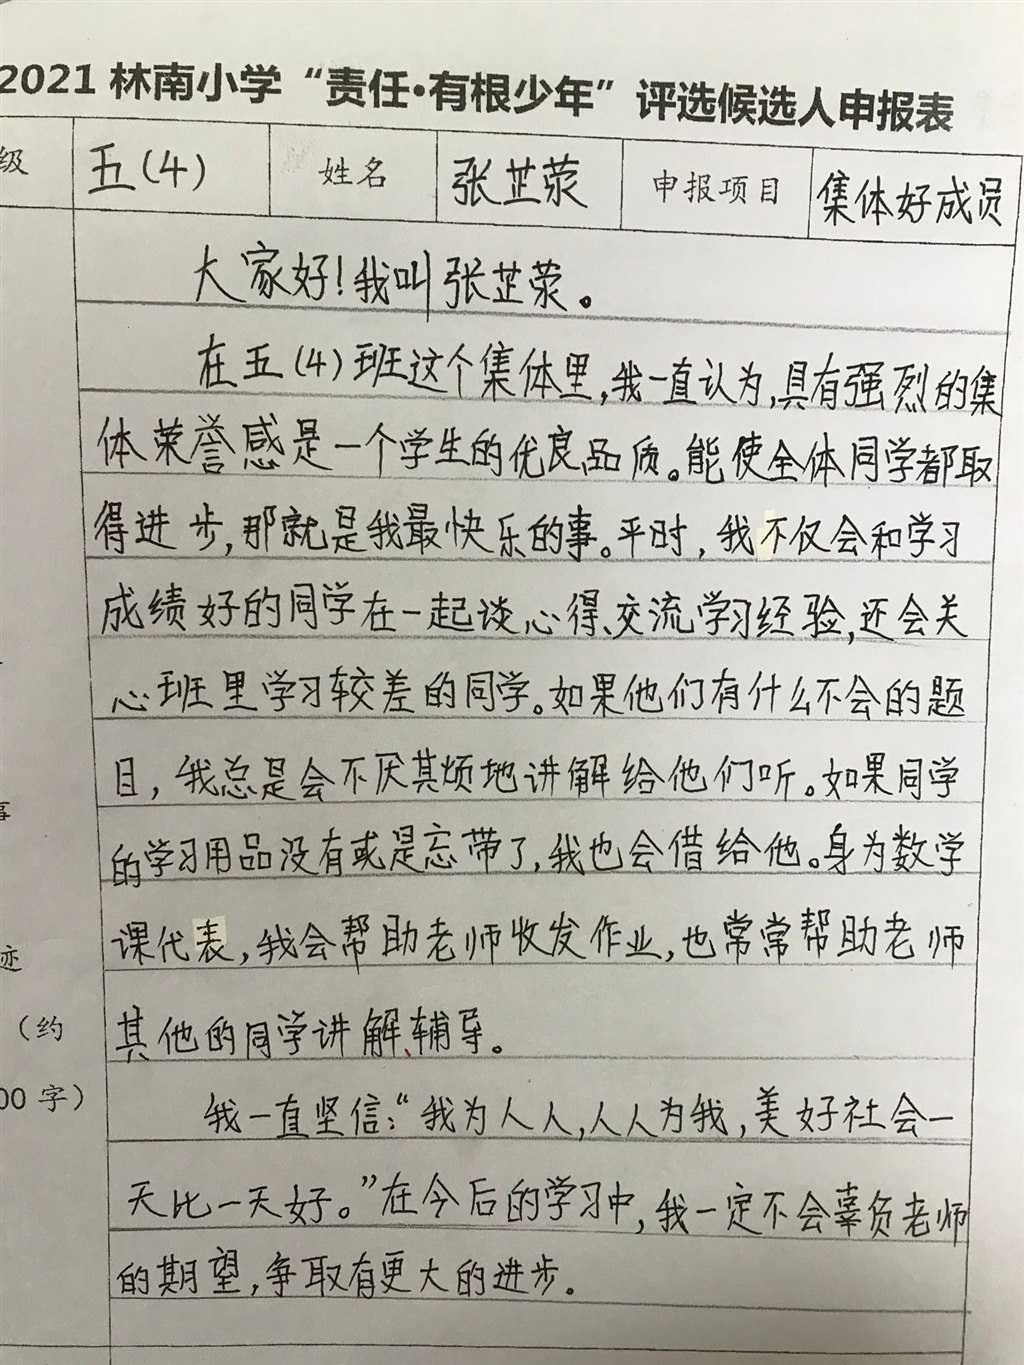 2021 林南小学“责任·有根少年”评选候选人申报表
级 五(4) 姓名 张芷荥 申报项目 集体好成员
大家好!我叫张芷荥。
在五(4)班这个集体里,我一直认为,具有强烈的集
体荣誉感是一个学生的优良品质。能使全体同学都取
得进步,那就是我最快乐的事。平时,我不仅会和学习
成绩好的同学在一起谈心得、交流学习经验,还会关
心班里学习较差的同学。如果他们有什么不会的题
目,我总是会不厌其烦地讲解给他们听。如果同学
的学习用品没有或是忘带了,我也会借给他。身为数学
事
课代表,我会帮助老师收发作业,也常常帮助老师
迹
其他的同学讲解、辅导。
(约
00字)
我一直坚信:“我为人人,人人为我,美好社会一
天比一天好。”在今后的学习中,我一定不会辜负老师
的期望,争取有更大的进步。